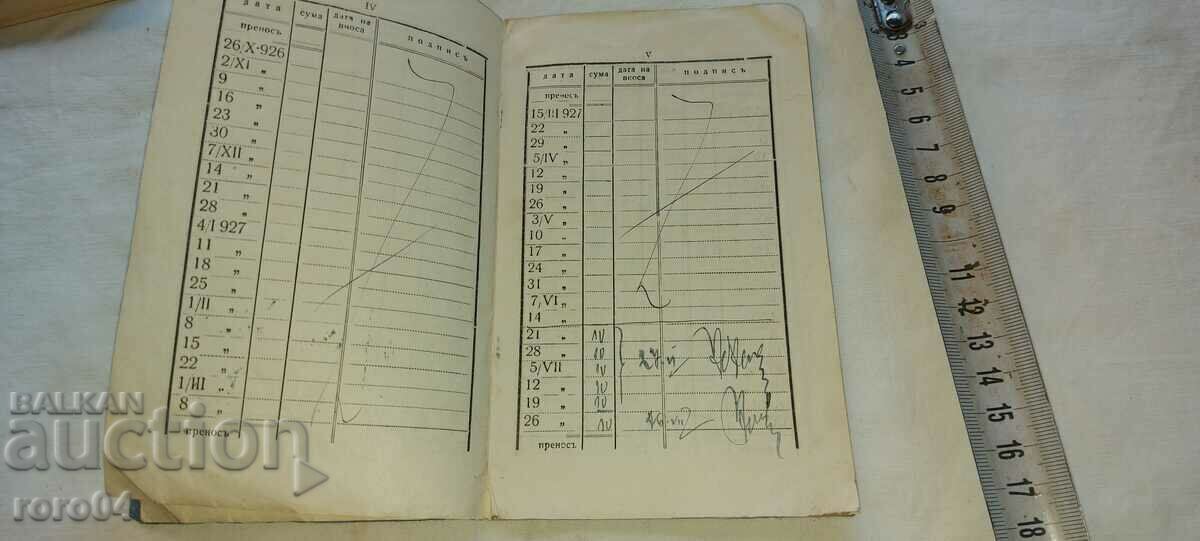 IV
дата сума дата на вноса подпись
преносъ
26/X-926
2/XI „
9 „
16 „
23 „
30 „
7/XII „
14 „
21 „
28 „
4/I 927
11 „
18 „
25 „
1/II „
8 „
15 „
22 „
1/III „
8 „
преносъ
V
дата сума дата на вноса подпись
преносъ
15/III 927
22 „
29 „
5/IV „
12 „
19 „
26 „
3/V „
10 „
17 „
24 „
31 „
7/VI „
14 „
21 „ 10
28 „ 10
5/VII „ 10
12 „ 10
19 „ 10
26 „ 10
преносъ
3 4 5 6 7 8 9 11 12 13 14 15 16 17 18
BALKAN
auction
roro04